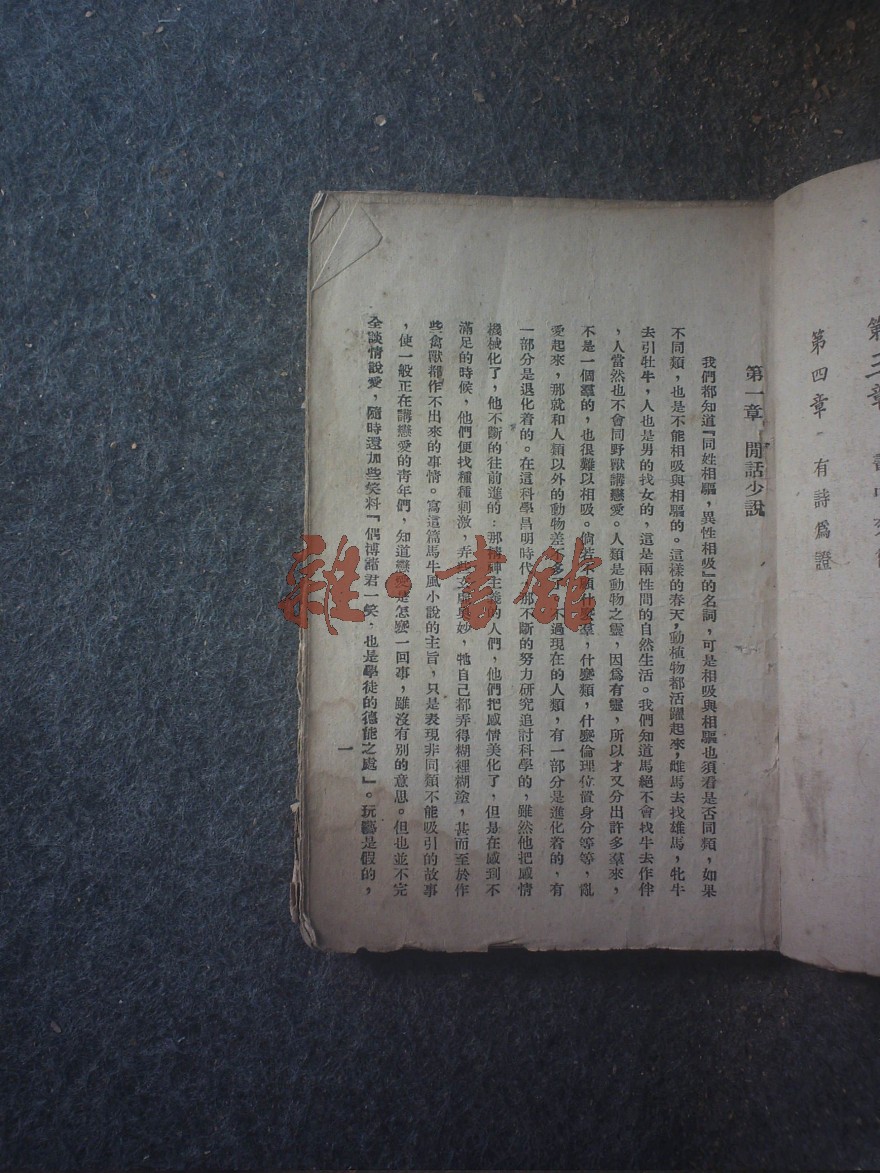 第四章 有詩爲證
第一章 閒話少說
我們都知道『同姓相驅，異性相吸』的名詞，可是相吸與相驅也須看是否同類，如果
不同類，也是不能相吸與相驅的。這樣的春天，動植物都活躍起來，雌馬去找雄馬，牝牛
去引牡牛，人也是男的找女的，這是兩性間的自然生活。我們知道馬絕不會找牛去作伴
，人當然也不會同野獸講戀愛。人類是動物之靈，因爲有靈，所以才又分出許多羣來，
不是一個羣的，也很難以相吸。倘若不顧什麼羣，什麼類，什麼倫理位置身分等等，亂
愛起來，那就和人類以外的動物差不多了，不過現在的人類，有一部分是進化着的，有
一部分是退化着的。在這科學昌明時代，那不斷的努力研究追討科學的，雖然他把感情
機械化了，他不斷的往前進的：那精神主義的人們，他們把感情美化了，但是在感到不
滿足的時候，他們便找種種刺激，弄得玄虛奧妙，牠自己都弄得糊裡糊塗，甚而至於作
些禽獸都作不出來的事情。寫這篇馬牛風小說的主旨，只是表現非同類不能吸引的故事
，使一般正在講戀愛的青年們，知道戀愛是怎麼一回事，雖沒有別的意思。但也並不完
全談情說愛，隨時還加些笑料『偶博諸君一笑，也是學徒的德能之處』。玩藝是假的，
一
雜·書館